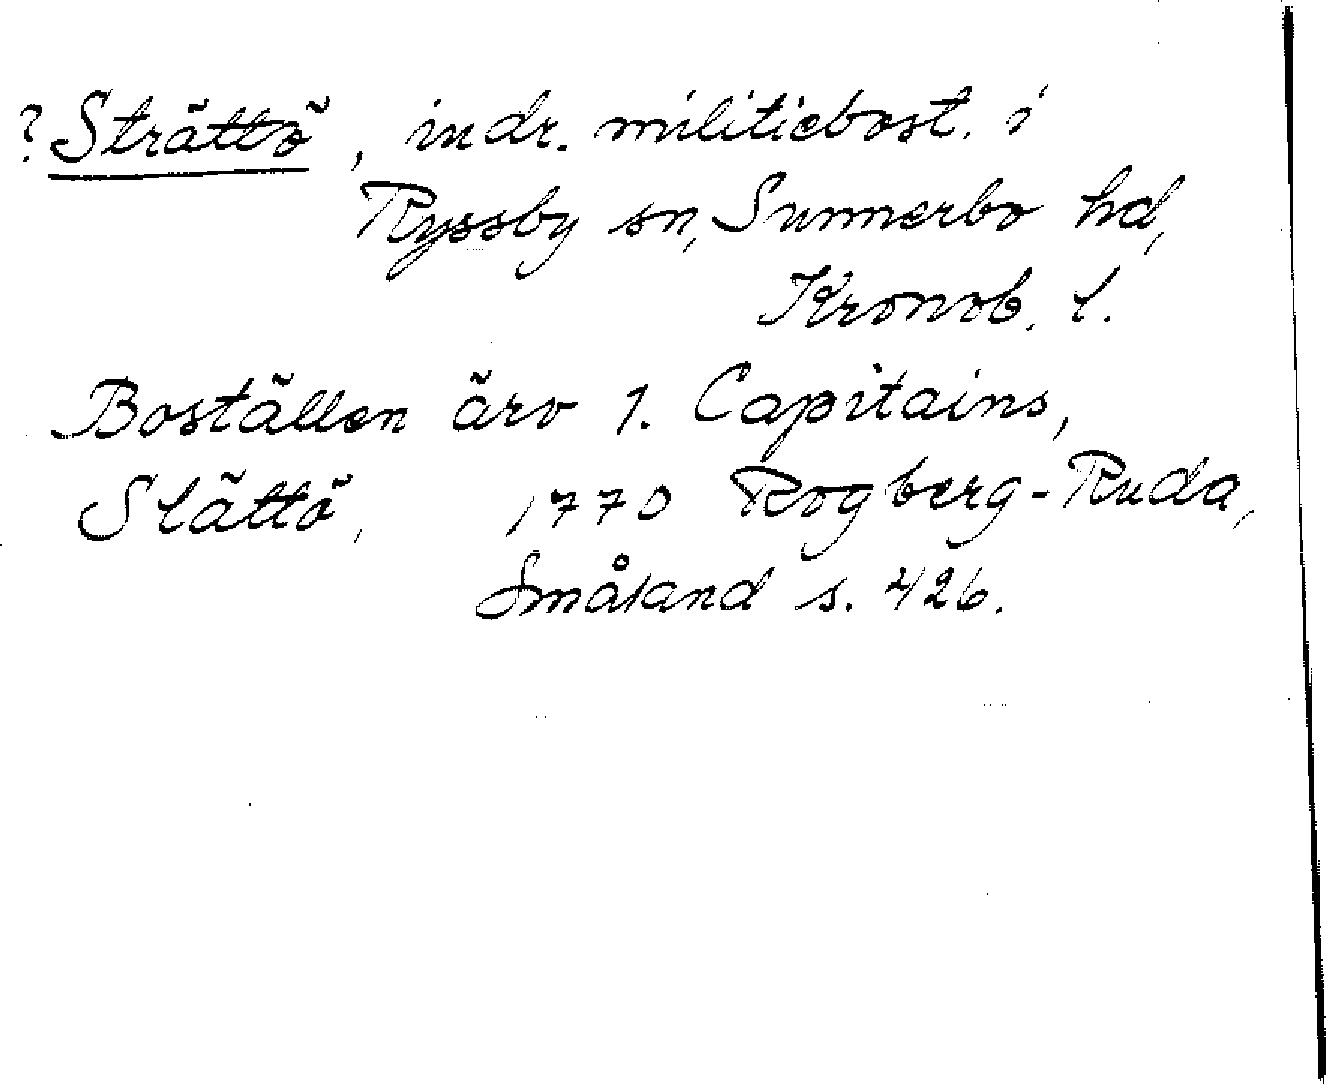 ?Strättö, indr. militiebost. i
Ryssby sn, Sunnerbo hd,
Kronob. l.
Boställen äro 1. Capitains,
Slättö, 1770 Rogberg-Ruda,
Småland s. 426.